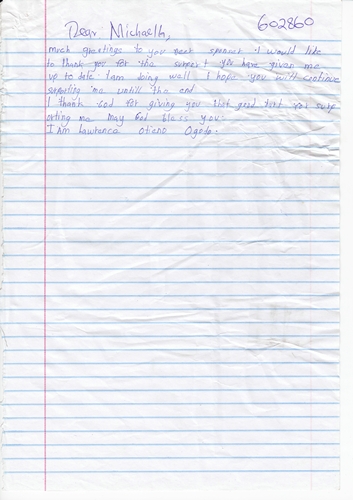 602860
Dear Michaella,
much greetings to you dear sponsor I would like
to thank you for the support you have given me
up to date. I am doing well I hope you will continue
supporting me untill the end
I thank God for giving you that good for supp
orting me may God bless you.
I Am Lawranca otieno Ogoda.